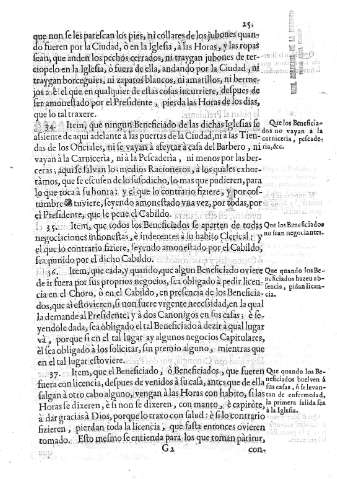 25.
que non se les parescan los pies, ni collares de los jubones quan-
do fueren por la Ciudad, ò en la Iglesia, à las Horas, y las ropas
sean, que anden los pechos cerrados, ni traygan jubones de ter-
ciopelo en la Iglesia, ò fuera de ella, andando por la Ciudad, ni
traygan borceguies, ni zapatos blancos, ni amarillos, ni berme-
jos: è el que en qualquier de estas cosas incurriere, despues de
ser amonestado por el Presidente, pierda las Horas de los dias,
que lo traxere.
34. Item, que ningun Beneficiado de las dichas Iglesias se
assiente de aqui adelante à las puertas de la Ciudad, ni à las Tien-
das de los Oficiales, ni se vayan à afeytar à casa del Barbero, ni
vayan à la Carniceria, ni à la Pescaderia, ni menos por las ber-
ceras; aqui se salvan los medios Racioneros, à los quales exhor-
tamos, que se escusen de lo susodicho, lo mas que pudieren, para
lo que toca à su honra: y el que lo contrario fiziere, y por cos-
tumbre tuviere, seyendo amonestado una vez, por todas, por
el Presidente, que le pene el Cabildo.
35. Item, que todos los Beneficiados se aparten de todas
negociaciones inhonestas, è inderentes à su habito Clerical: y
el que lo contrario fiziere, seyendo amonestado por el Cabildo,
sea punido por el dicho Cabildo.
36. Item, que cada, y quando, que algun Beneficiado oviere
de ir fuera por sus proprios negocios, sea obligado à pedir licen-
cia en el Choro, ò en el Cabildo, en presencia de los Beneficia-
dos, que ai estovieren, si non fuere vrgente necessidad, en la qual
la demande al Presidente; y à dos Canonigos en sus casas: è se-
yendole dada, sea obligado el tal Beneficiado à dezir à qual lugar
và, porque si en el tal lugar ay algunos negocios Capitulares,
èl sea obligado à los solicitar, sin premio alguno, mientras que
en el tal lugar estoviere.
37. Item, que el Beneficiado, ò Beneficiados, que fueren
fuera con licencia, despues de venidos à su casa, antes que de ella
salgan à otro cabo alguno, vengan à las Horas con habito, si las
Horas se dixeren, è si non se dixeren, con manto, è capirote,
à dar gracias à Dios, porque lo traxo con salud: è si lo contrario
fizieren, pierdan toda la licencia, que fasta entonces ovieren
tomado. Esto mesmo se entienda para los que toman patitur,
G2 con-
Que los Beneficia-
dos no vayan à la
carniceria, pescade-
ria, &c.
Que los Beneficiados
no sean negociantes.
Que quando los Be-
neficiados hazen ab-
sencia, pidan licen-
cia.
Que quando los Be-
neficiados buelven à
sus casas, ò se levan-
tan de enfermedad,
la primera salida sea
à la Iglesia.